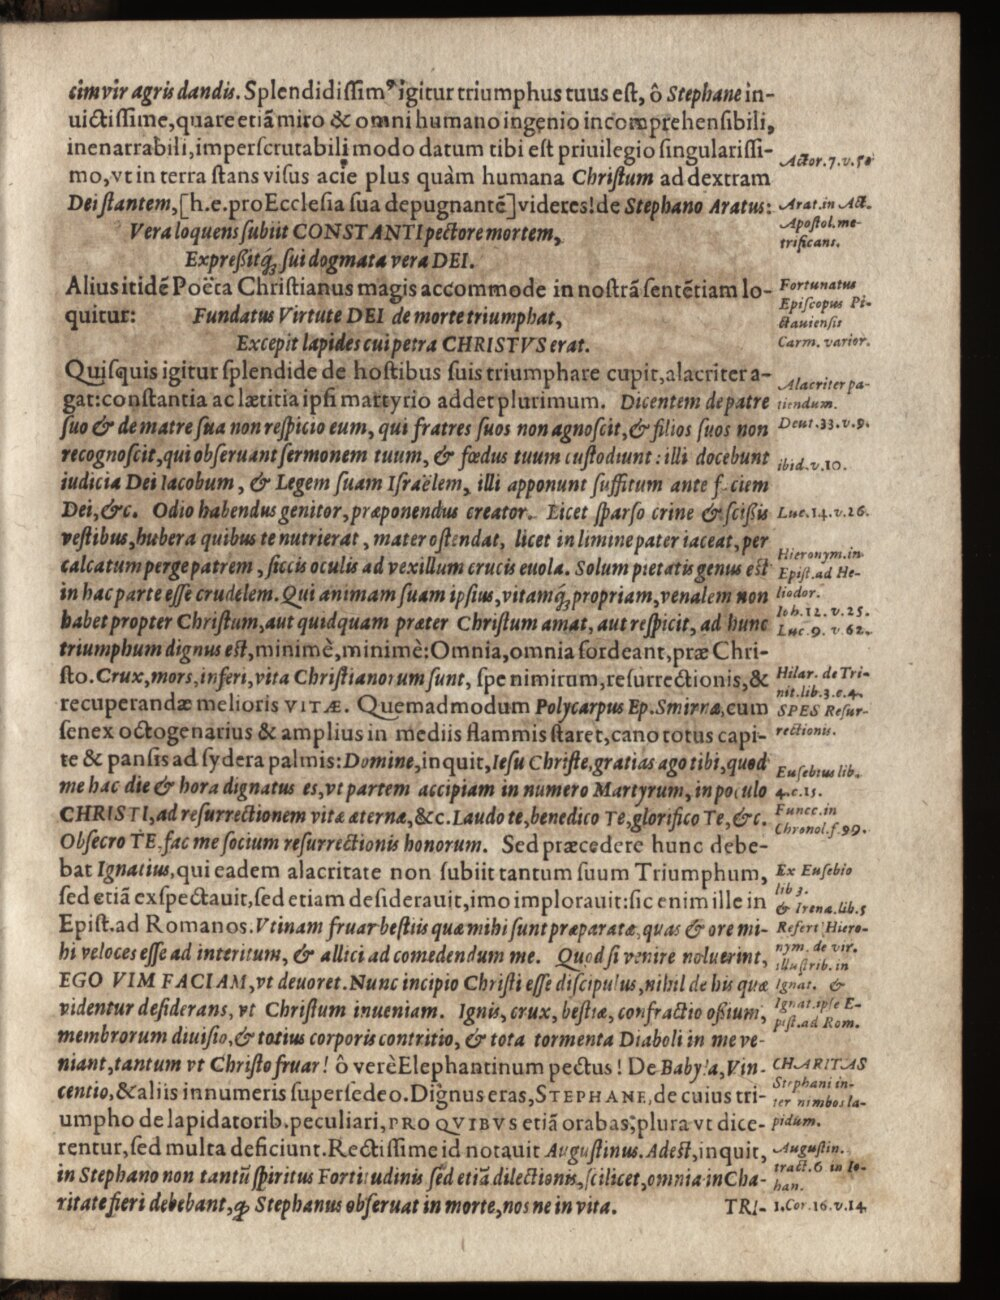 cimvir agris dandis. Splendidissimꝰ igitur triumphus tuus est, ô Stephane in-
uictissime, quare etiã miro & omni humano ingenio incomprehensibili,
inenarrabili, imperscrutabili modo datum tibi est priuilegio singularissi-
mo, vt in terra stans visus acie plus quàm humana Christum ad dextram
Dei stantem, [h.e. pro Ecclesia sua depugnantẽ] videres! de Stephano Aratus:
Vera loquens subiit CONSTANTI pectore mortem,
Expreßitq́ꝫ sui dogmata vera DEI.
Alius itidẽ Poëta Christianus magis accommode in nostrã sentẽtiam lo-
quitur: Fundatus Virtute DEI de morte triumphat,
Excepit lapides cui petra CHRISTVS erat.
Quisquis igitur splendide de hostibus suis triumphare cupit, alacriter a-
gat: constantia ac lætitia ipsi martyrio addet plurimum. Dicentem de patre
suo & de matre sua non respicio eum, qui fratres suos non agnoscit, & filios suos non
recognoscit, qui obseruant sermonem tuum, & fœdus tuum custodiunt: illi docebunt
iudicia Dei Iacobum, & Legem suam Israëlem, illi apponunt suffitum ante faciem
Dei, &c. Odio habendus genitor, præponendus creator. Licet sparso crine & scißis
vestibus, hubera quibus te nutrierat, mater ostendat, licet in limine pater iaceat, per
calcatum perge patrem, siccis oculis ad vexillum crucis euola. Solum pietatis genus est
in hac parte esse crudelem. Qui animam suam ipsius, vitamq́ꝫ propriam, venalem non
habet propter Christum, aut quidquam præter Christum amat, aut respicit, ad hunc
triumphum dignus est, minimè, minimè: Omnia, omnia sordeant, præ Chri-
sto. Crux, mors, inferi, vita Christianorum sunt, spe nimirum, resurrectionis, &
recuperandæ melioris VITÆ. Quemadmodum Polycarpus Ep. Smirnæ, cum
senex octogenarius & amplius in mediis flammis staret, cano totus capi-
te & pansis ad sydera palmis: Domine, inquit, Iesu Christe, gratias ago tibi, quod
me hac die & hora dignatus es, vt partem accipiam in numero Martyrum, in poculo
CHRISTI, ad resurrectionem vitæ æternæ, &c. Laudo te, benedico Te, glorifico Te, &c.
Obsecro TE, fac me socium resurrectionis honorum. Sed præcedere hunc debe-
bat Ignatius, qui eadem alacritate non subiit tantum suum Triumphum,
sed etiã exspectauit, sed etiam desiderauit, imo implorauit: sic enim ille in
Epist. ad Romanos. Vtinam fruar bestiis quæ mihi sunt præparatæ, quas & ore mi-
hi veloces esse ad interitum, & allici ad comedendum me. Quod si venire noluerint,
EGO VIM FACIAM, vt deuoret. Nunc incipio Christi esse discipulus, nihil de his quæ
videntur desiderans, vt Christum inueniam. Ignis, crux, bestiæ, confractio oßium,
membrorum diuisio, & totius corporis contritio, & tota tormenta Diaboli in me ve-
niant, tantum vt Christo fruar! ô verè Elephantinum pectus! De Babyla, Vin-
centio, & aliis innumeris supersedeo. Dignus eras, STEPHANE, de cuius tri-
umpho de lapidatorib. peculiari, PRO QVIBVS etiã orabas; plura vt dice-
rentur, sed multa deficiunt. Rectissime id notauit Augustinus. Adest, inquit,
in Stephano non tantũ spiritus Fortitudinis sed etiã dilectionis, scilicet, omnia in Cha-
ritate fieri debebant, ꝙ Stephanus obseruat in morte, nos ne in vita. TRI-
Actor. 7. v. 56
Arat. in Act.
Apostol. me-
trificans.
Fortunatus
Episcopus Pi-
ctauiensis
Carm. varior.
Alacriter pa-
tiendum.
Deut. 33. v. 9.
ibid. v. 10.
Luc. 14. v. 26.
Hieronym. in
Epist. ad He-
liodor.
Ioh. 12. v. 25.
Luc. 9. v. 62.
Hilar. de Tri-
nit. lib. 3. e. 4.
SPES Resur-
rectionis.
Eusebius lib.
4. c. 15.
Funcc. in
Chronol. f. 99.
Ex Eusebio
lib 3.
& Irenæ. lib. 5
Refert Hiero-
nym. de vir.
illustrib. in
Ignat. &
Ignat. ipse E-
pist. ad Rom.
CHARITAS
Stephani in-
ter nimbos la-
pidum.
Augustin.
tract. 6 in Io-
han.
1. Cor. 16. v. 14.